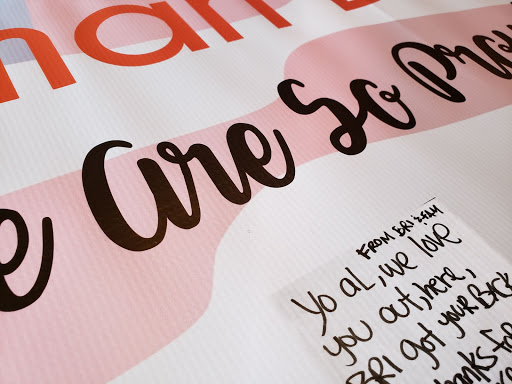 man
e are So Prou
FROM BRI
Yo al, we love
you out here,
BRI got your BACK
thanks for